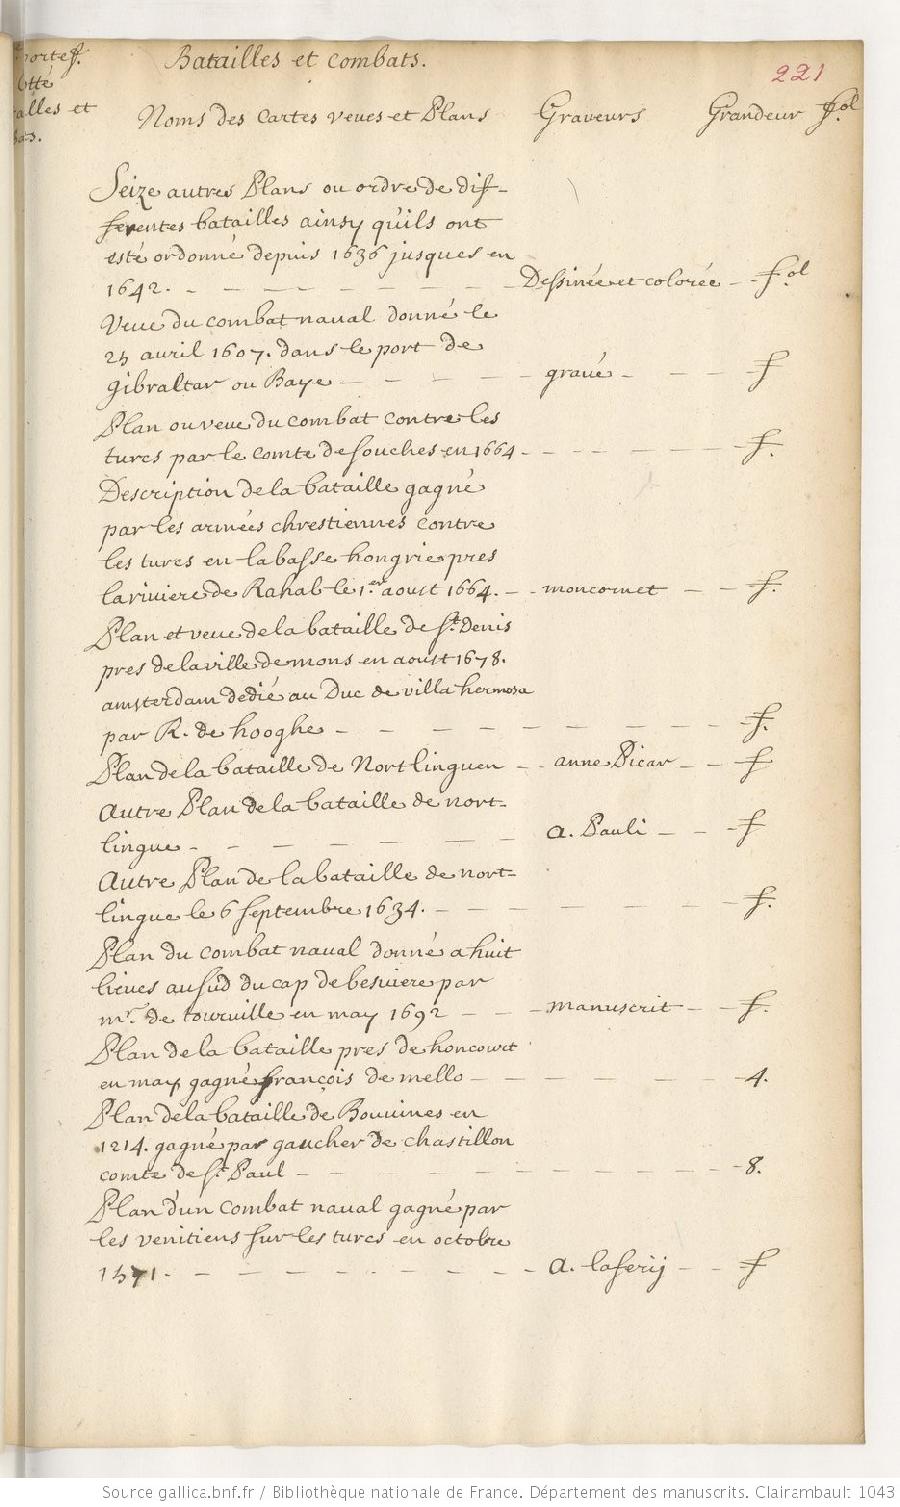 Batailles et combats.
221
Noms des cartes veues et Plans Graveurs Grandeur fol
Seize autres Plans ou ordre de dif-
ferentes batailles ainsy qu'ils ont
esté ordonné depuis 1636 jusques en
1642. - - - - - - - - Dessinée et colorée - fol
Veue du combat naval donné le
25 avril 1607. dans le port de
gibraltar ou Baye - - - - - gravé - - - f
Plan ou veue du combat contre les
turcs par le comte de souches en 1664 - - - - - - f.
Description de la bataille gagné
par les armées chrestiennes contre
les turcs en la basse hongrie pres
la riviere de Rahab le 1.er aoust 1664. - - moncornet - - f.
Plan et veue de la bataille de St. Denis
pres de la ville de mons en aoust 1678.
amsterdam dedié au Duc de villa hermosa
par R. de hooghe - - - - - - - - - f.
Plan de la bataille de Nortlinguen - - anne Picar - - f
Autre Plan de la bataille de nort-
lingue - - - - - - - a. Pauli - - f
Autre Plan de la bataille de nort-
lingue le 6 septembre 1634. - - - - - - - f.
Plan du combat naval donné a huit
lieues au sud du cap de besviere par
mr. de tourville en may 1692 - - - manuscrit - - f.
Plan de la bataille pres de honcourt
en may gagné françois de mello - - - - - - - 4.
Plan de la bataille de Bouvines en
1214. gagné par gaucher de chastillon
comte de St. Paul - - - - - - - - - 8.
Plan d'un combat naval gagné par
les venitiens sur les turcs en octobre
1571. - - - - - - - - - a. laferij - - f
Source gallica.bnf.fr / Bibliothèque nationale de France. Département des manuscrits. Clairambault 1043